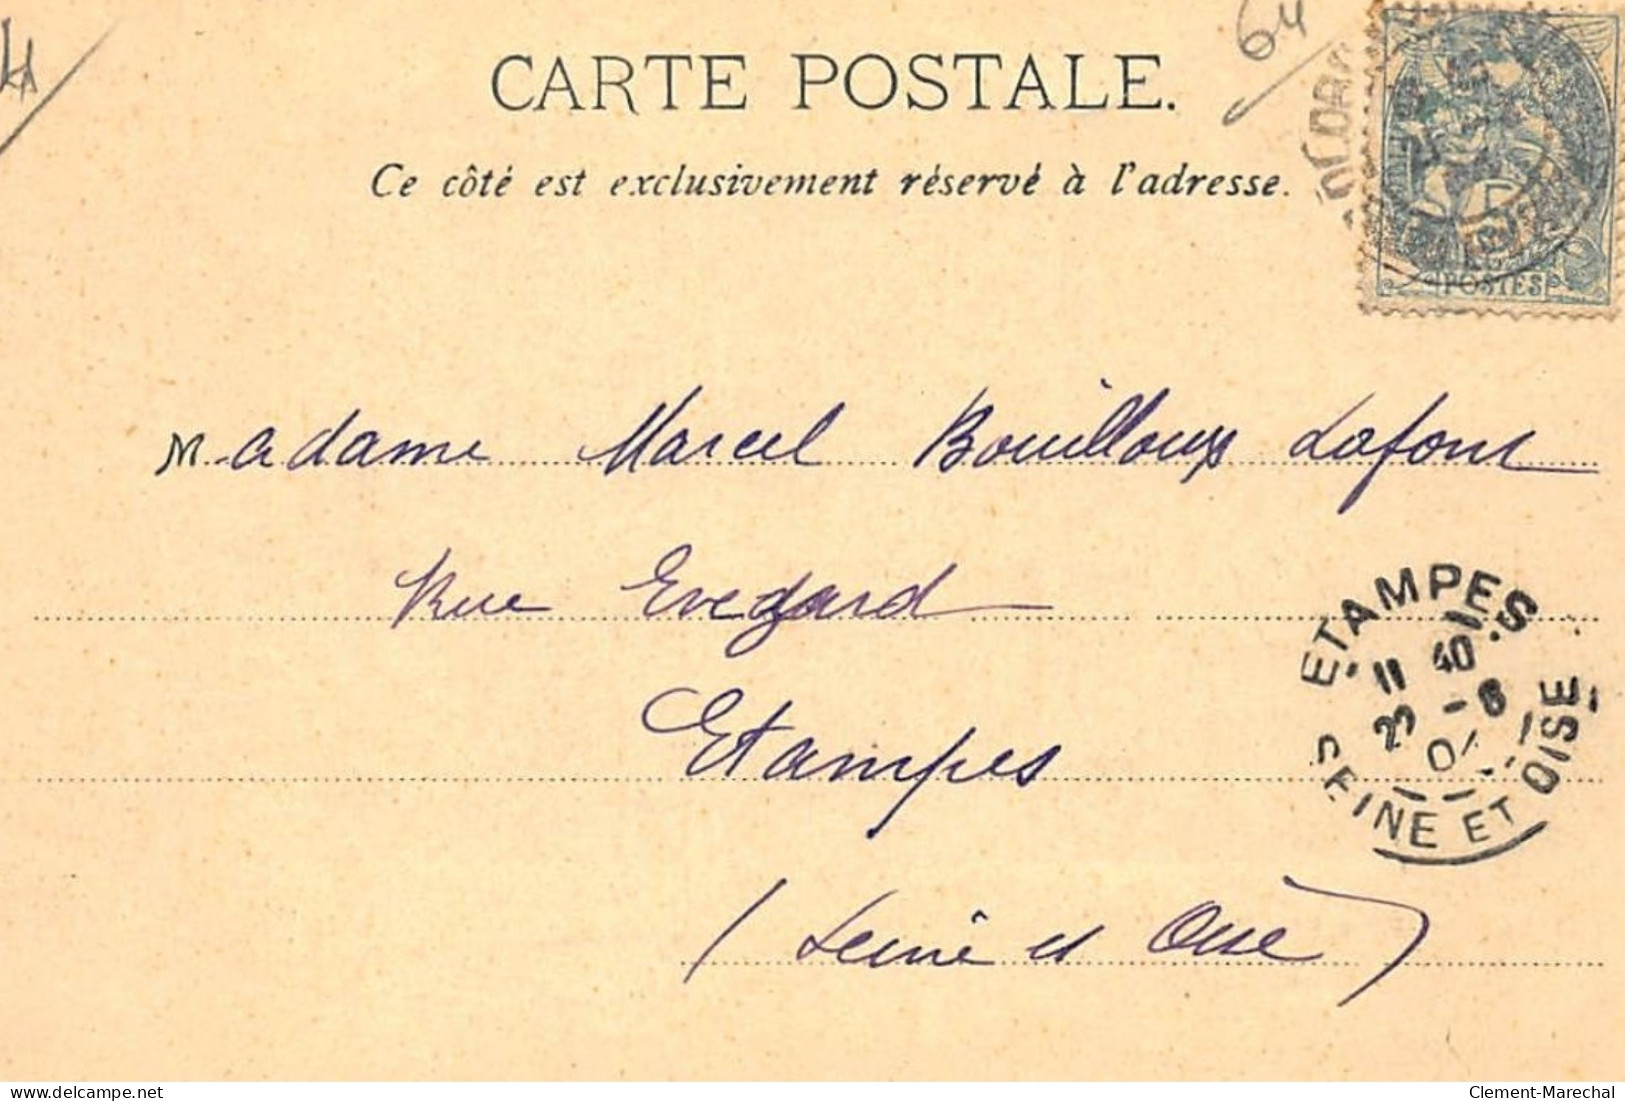 64
CARTE POSTALE.
Ce côté est exclusivement réservé à l'adresse.
POSTES
Madame Marcel Bouilloux Lafont
Rue Evezard
Etampes
(Seine et Oise)
ETAMPES
11 40
22 -8
04
SEINE ET OISE
www.delcampe.net
Clement-Marechal